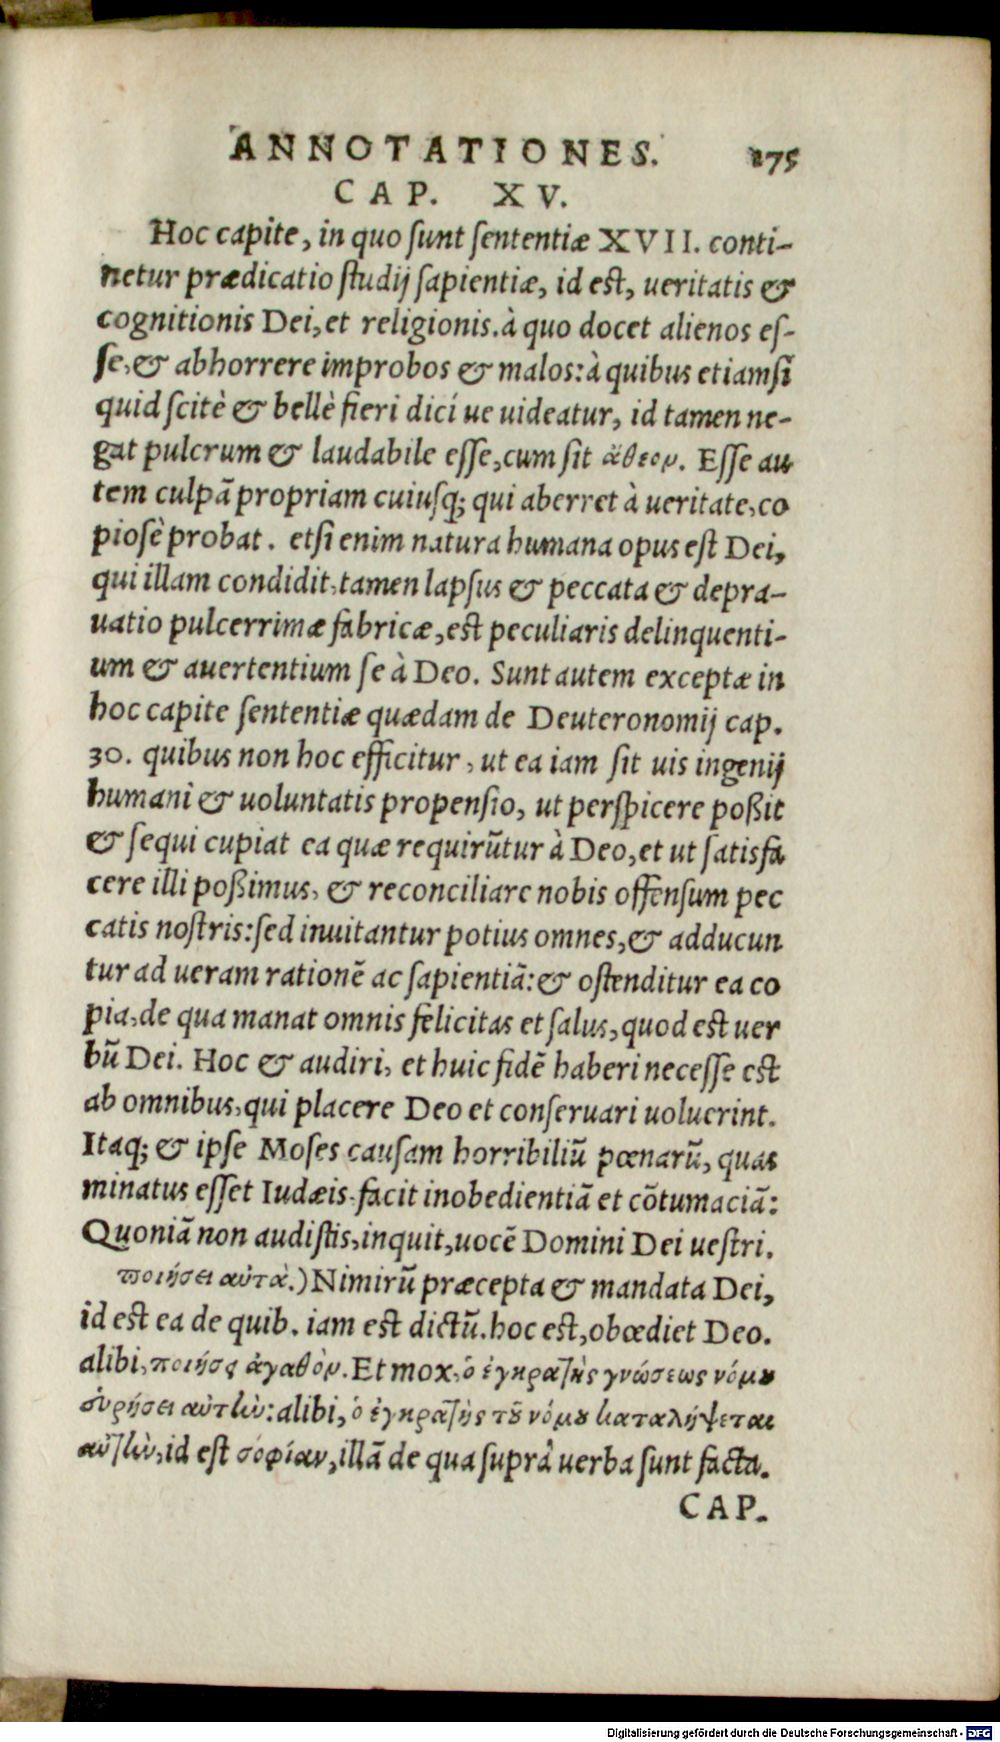 ANNOTATIONES. 275
CAP. XV.
Hoc capite, in quo sunt sententiæ XVII. conti-
netur prædicatio studij sapientiæ, id est, ueritatis &
cognitionis Dei, et religionis. à quo docet alienos es-
se, & abhorrere improbos & malos: à quibus etiamsi
quid scitè & bellè fieri dici ue uideatur, id tamen ne-
gat pulcrum & laudabile esse, cum sit ἄθεον. Esse au
tem culpã propriam cuiusq; qui aberret à ueritate, co
piosè probat. etsi enim natura humana opus est Dei,
qui illam condidit, tamen lapsus & peccata & depra-
uatio pulcerrimæ fabricæ, est peculiaris delinquenti-
um & auertentium se à Deo. Sunt autem exceptæ in
hoc capite sententiæ quædam de Deuteronomij cap.
30. quibus non hoc efficitur, ut ea iam sit uis ingenij
humani & uoluntatis propensio, ut perspicere poßit
& sequi cupiat ea quæ requirũtur à Deo, et ut satisfa
cere illi poßimus, & reconciliare nobis offensum pec
catis nostris: sed inuitantur potius omnes, & adducun
tur ad ueram rationẽ ac sapientiã: & ostenditur ea co
pia, de qua manat omnis felicitas et salus, quod est uer
bũ Dei. Hoc & audiri, et huic fidẽ haberi necesse est
ab omnibus, qui placere Deo et conseruari uoluerint.
Itaq; & ipse Moses causam horribiliũ pœnarũ, quas
minatus esset Iudæis facit inobedientiã et cõtumaciã:
Quoniã non audistis, inquit, uocẽ Domini Dei uestri.
ποιήσει αὐτὰ.) Nimirũ præcepta & mandata Dei,
id est ea de quib. iam est dictũ. hoc est, obœdiet Deo.
alibi, ποιήσῃ ἀγαθὸν. Et mox, ὁ ἐγκρατὴς γνώσεως νόμου
εὑρήσει αὐτὼ: alibi, ὁ ἐγκρατὴς τοῦ νόμου καταλήψεται
αὐτὼ, id est σοφίαν, illã de qua suprà uerba sunt facta.
CAP.
Digitalisierung gefördert durch die Deutsche Forschungsgemeinschaft - DFG